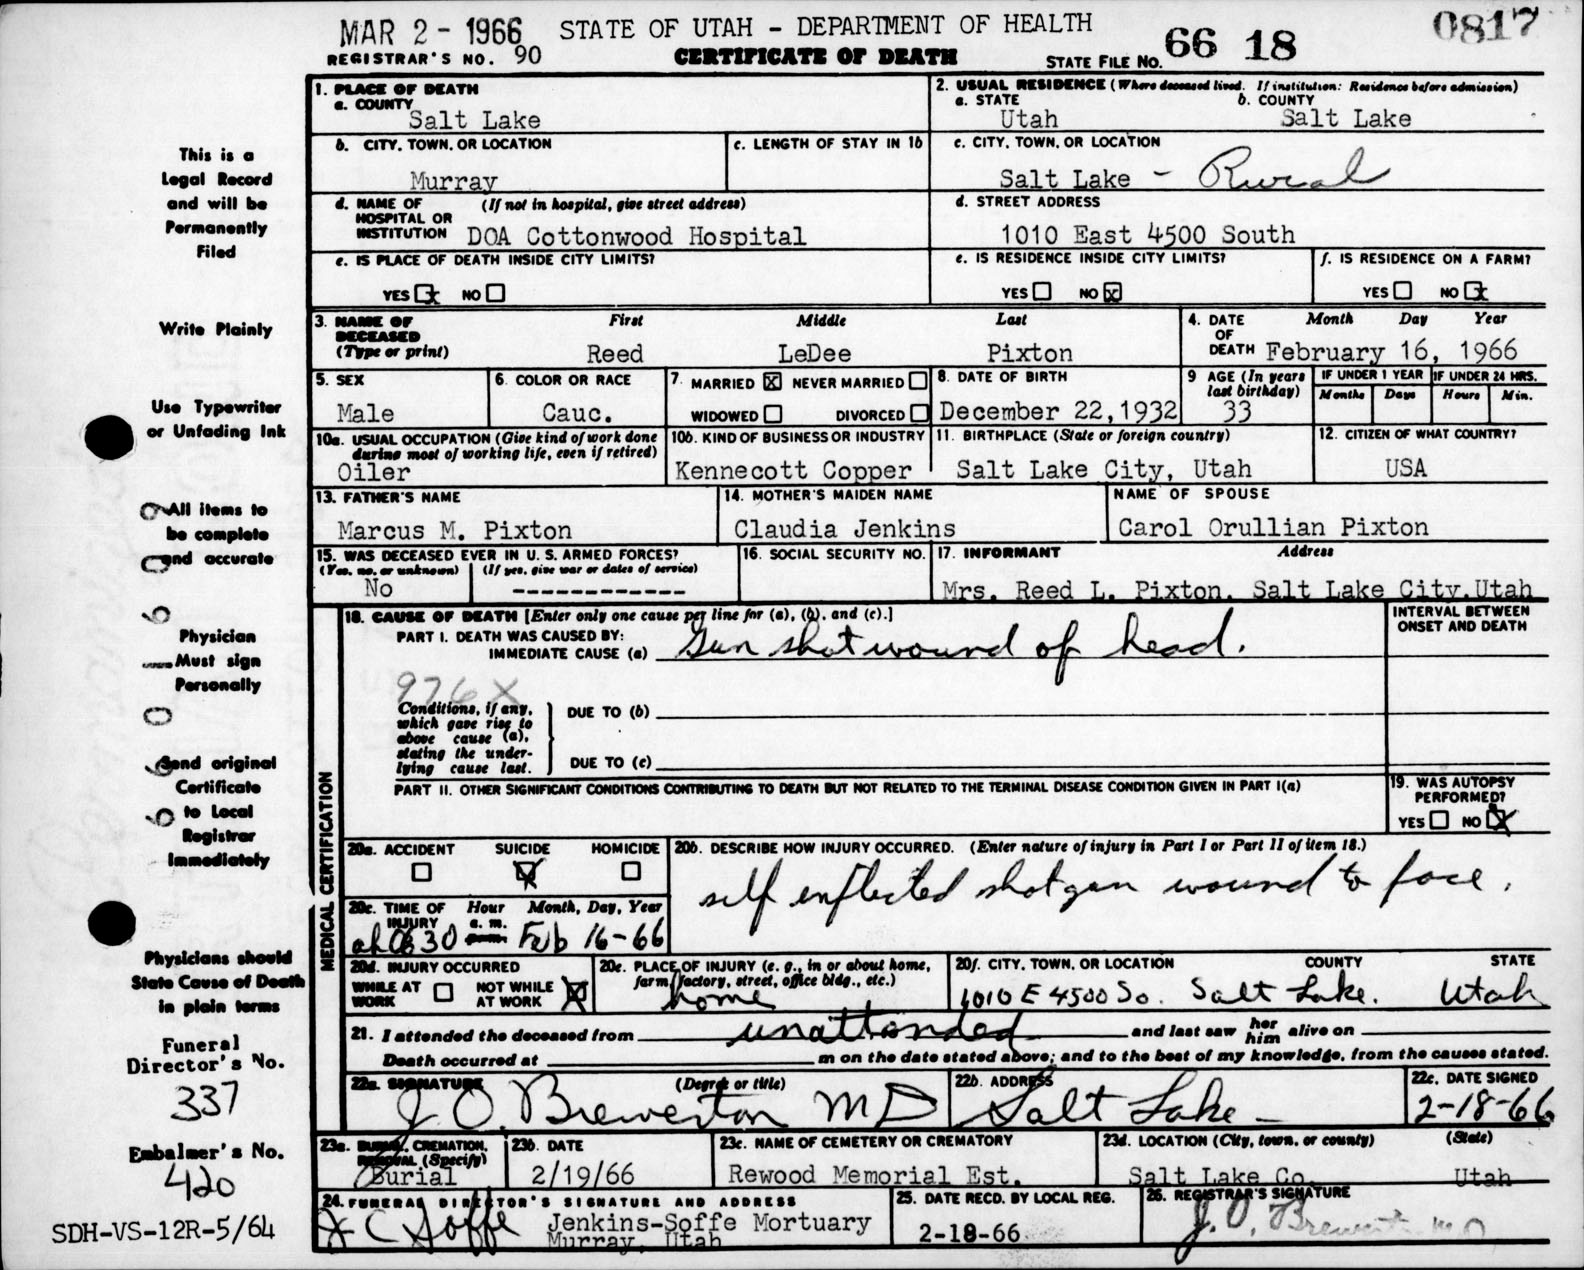 MAR 2 - 1966 STATE OF UTAH - DEPARTMENT OF HEALTH 0817
REGISTRAR'S NO. 90 CERTIFICATE OF DEATH STATE FILE NO. 66 18
1. PLACE OF DEATH
a. COUNTY
Salt Lake
2. USUAL RESIDENCE (Where deceased lived. If institution: Residence before admission)
a. STATE b. COUNTY
Utah Salt Lake
b. CITY, TOWN, OR LOCATION
Murray
c. LENGTH OF STAY IN 1b
c. CITY, TOWN, OR LOCATION
Salt Lake - Rural
d. NAME OF HOSPITAL OR INSTITUTION (If not in hospital, give street address)
DOA Cottonwood Hospital
d. STREET ADDRESS
1010 East 4500 South
e. IS PLACE OF DEATH INSIDE CITY LIMITS?
YES x NO
e. IS RESIDENCE INSIDE CITY LIMITS?
YES NO x
f. IS RESIDENCE ON A FARM?
YES NO x
3. NAME OF DECEASED (Type or print)
First Middle Last
Reed LeDee Pixton
4. DATE OF DEATH Month Day Year
February 16, 1966
5. SEX
Male
6. COLOR OR RACE
Cauc.
7. MARRIED x NEVER MARRIED
WIDOWED DIVORCED
8. DATE OF BIRTH
December 22,1932
9 AGE (In years last birthday)
33
IF UNDER 1 YEAR
Months Days
IF UNDER 24 HRS.
Hours Min.
10a. USUAL OCCUPATION (Give kind of work done during most of working life, even if retired)
Oiler
10b. KIND OF BUSINESS OR INDUSTRY
Kennecott Copper
11. BIRTHPLACE (State or foreign country)
Salt Lake City, Utah
12. CITIZEN OF WHAT COUNTRY?
USA
13. FATHER'S NAME
Marcus M. Pixton
14. MOTHER'S MAIDEN NAME
Claudia Jenkins
NAME OF SPOUSE
Carol Orullian Pixton
15. WAS DECEASED EVER IN U. S. ARMED FORCES?
(Yes, no, or unknown) (If yes, give war or dates of service)
No ------------
16. SOCIAL SECURITY NO.
17. INFORMANT Address
Mrs. Reed L. Pixton, Salt Lake City, Utah
MEDICAL CERTIFICATION
18. CAUSE OF DEATH [Enter only one cause per line for (a), (b), and (c).]
PART I. DEATH WAS CAUSED BY:
IMMEDIATE CAUSE (a) Gun shot wound of head.
INTERVAL BETWEEN ONSET AND DEATH
976X
Conditions, if any, which gave rise to above cause (a), stating the underlying cause last.
DUE TO (b)
DUE TO (c)
PART II. OTHER SIGNIFICANT CONDITIONS CONTRIBUTING TO DEATH BUT NOT RELATED TO THE TERMINAL DISEASE CONDITION GIVEN IN PART I(a)
19. WAS AUTOPSY PERFORMED?
YES NO X
20a. ACCIDENT SUICIDE HOMICIDE
X
20b. DESCRIBE HOW INJURY OCCURRED. (Enter nature of injury in Part I or Part II of item 18.)
self inflected shotgun wound to face.
20c. TIME OF INJURY Hour Month, Day, Year
a. m.
p. m.
630 Feb 16-66
20d. INJURY OCCURRED
WHILE AT WORK NOT WHILE AT WORK X
20e. PLACE OF INJURY (e. g., in or about home, farm, factory, street, office bldg., etc.)
home
20f. CITY, TOWN, OR LOCATION COUNTY STATE
1010 E 4500 So. Salt Lake. Utah
21. I attended the deceased from unattended and last saw her him alive on
Death occurred at m on the date stated above; and to the best of my knowledge, from the causes stated.
22a. SIGNATURE (Degree or title)
J. O. Brewerton MD
22b. ADDRESS
Salt Lake -
22c. DATE SIGNED
2-18-66
23a. BURIAL, CREMATION, REMOVAL (Specify)
Burial
23b. DATE
2/19/66
23c. NAME OF CEMETERY OR CREMATORY
Rewood Memorial Est.
23d. LOCATION (City, town, or county) (State)
Salt Lake Co. Utah
24. FUNERAL DIRECTOR'S SIGNATURE AND ADDRESS
J C Soffe Jenkins-Soffe Mortuary
Murray, Utah
25. DATE RECD. BY LOCAL REG.
2-18-66
26. REGISTRAR'S SIGNATURE
J. O. Brewerton M.D.
This is a
Legal Record
and will be
Permanently
Filed
Write Plainly
Use Typewriter
or Unfading Ink
All items to
be complete
and accurate
Physician
Must sign
Personally
Send original
Certificate
to Local
Registrar
Immediately
Physicians should
State Cause of Death
in plain terms
Funeral
Director's No.
337
Embalmer's No.
420
SDH-VS-12R-5/64